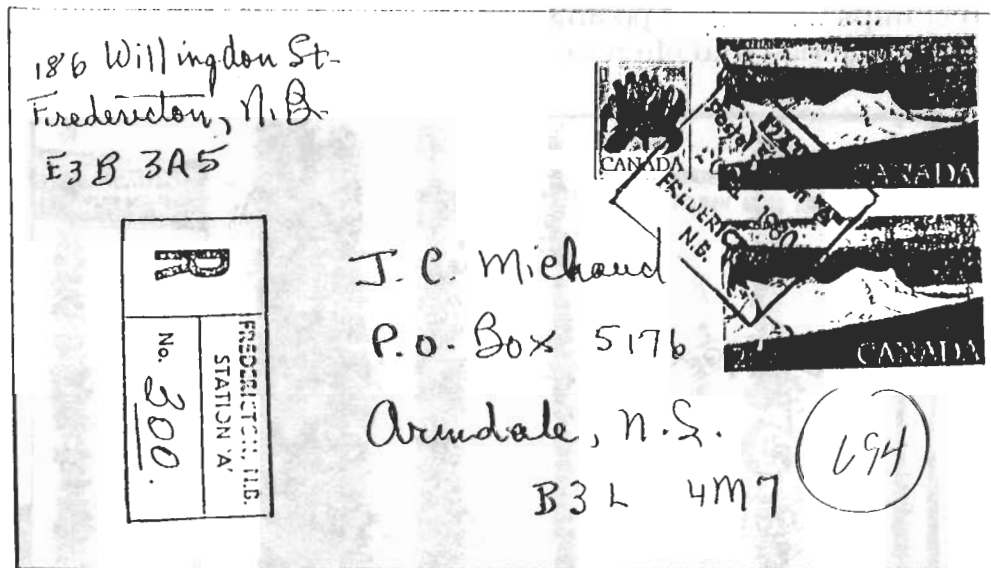 186 Willingdon St-
Fredericton, N.B.
E3B 3A5
CANADA
CANADA
CANADA
FREDERIC
N.B.
R
FREDERICTON, N.B.
STATION 'A'
No. 300.
J. C. Michaud
P.O. Box 5176
Armdale, N.S.
B3L 4M7
694